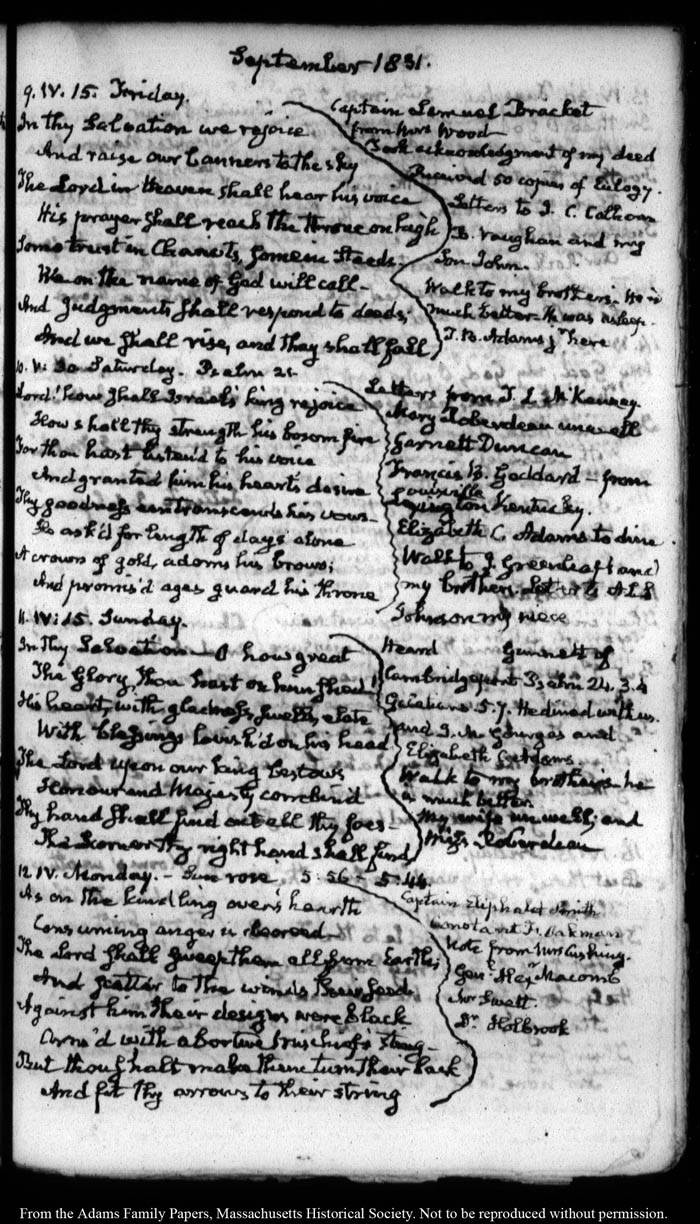 September 1831.
9. IV. 15. Friday.
In thy Salvation we rejoice
And raise our banners to the sky
The Lord in Heaven shall hear his voice
His prayer shall reach the throne on high
Some trust in Chariots, some in Steeds.
We on the name of God will call—
And Judgments shall respond to deeds;
And we shall rise, and they shall fall
Captain Lemuel Bracket
from Mrs Wood—
Took acknowledgment of my deed
Received 50 copies of Eulogy.
Letters to J. C. Calhoun
B. Vaughan and my
Son John.
Walk to my brother's. He is
much better—He was asleep.
T. B. Adams jr here
10. V: 30 Saturday. Psalm 21.
Lord! how shall Israel's king rejoice
How shall thy strength his bosom fire
For thou hast listen'd to his voice
And granted him his heart's desire
Thy goodness even transcends his vows—
He ask'd for length of days alone
A crown of gold, adorns his brows;
And promis'd ages guard his throne
Letters from T. L. McKenney
Mary Roberdeau unwell
Garnett Duncan
Francis B. Goddard — from
Louisville
Lexington Kentucky.
Elizabeth C. Adams to dine
Walk to J. Greenleaf's and
my brother.
Johnson my niece
11. IV: 15. Sunday.
In Thy Salvation—O how great
The Glory, thou hast on him shed!
His heart, with gladness, swells, elate
With blessings lavish'd on his head
The Lord upon our king bestows
Honour and Majesty combin'd
Thy hand shall find out all thy foes—
The Scorner thy right hand shall find
Heard Gunnett of
Cambridgeport Psalm 24. 3.4
Galatians 5.7. He dined with us.
and I. M. Gourgas and
Elizabeth C. Adams.
Walk to my brother's—he
is much better.
My wife unwell; and
Miss Roberdeau
12 IV. Monday. — Sun rose 5:36 — 5:44.
As on the kindling oven's hearth
Consuming anger is
The Lord shall sweep them all from Earth;
And scatter to the winds their seed.
Against him their designs were black
Arm'd with abortive mischief's sting—
But thou shalt make them turn their back
And fit thy arrows to their string
Captain Eliphalet Smith
Constant F. Oakman
Note from Mrs Cushing.
Genl Alexr Macomb
Mr Swett.
Dr Holbrook
From the Adams Family Papers, Massachusetts Historical Society. Not to be reproduced without permission.